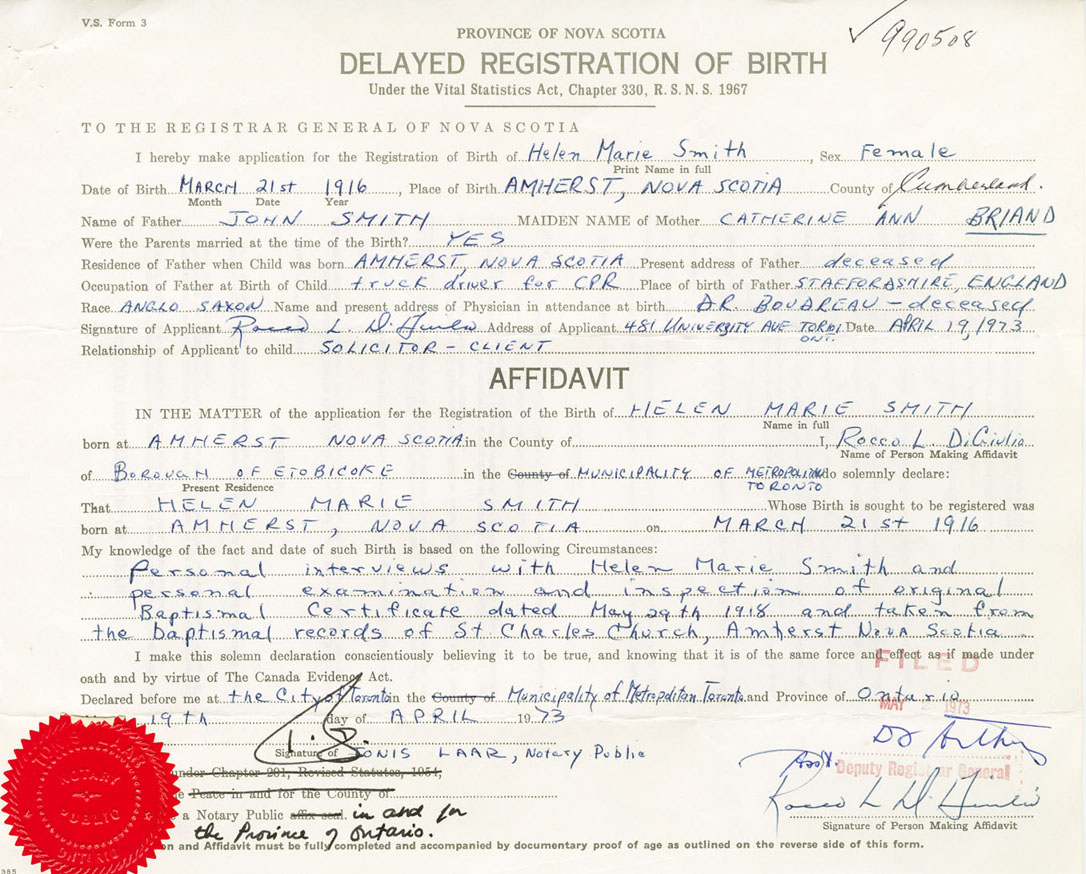 V.S. Form 3
990508
PROVINCE OF NOVA SCOTIA
DELAYED REGISTRATION OF BIRTH
Under the Vital Statistics Act, Chapter 330, R.S.N.S. 1967
TO THE REGISTRAR GENERAL OF NOVA SCOTIA
I hereby make application for the Registration of Birth of Helen Marie Smith, Sex Female
Print Name in full
Date of Birth MARCH 21st 1916, Place of Birth AMHERST, NOVA SCOTIA County of Cumberland.
Month Date Year
Name of Father JOHN SMITH MAIDEN NAME of Mother CATHERINE ANN BRIAND
Were the Parents married at the time of the Birth? YES
Residence of Father when Child was born AMHERST, NOVA SCOTIA Present address of Father deceased
Occupation of Father at Birth of Child truck driver for CPR Place of birth of Father STAFFORDSHIRE, ENGLAND
Race ANGLO SAXON Name and present address of Physician in attendance at birth DR. BOUDREAU - deceased
Signature of Applicant Rocco L. DiGiulio Address of Applicant 481 UNIVERSITY AVE Date APRIL 19, 1973
ONT.
Relationship of Applicant to child SOLICITOR - CLIENT
AFFIDAVIT
IN THE MATTER of the application for the Registration of the Birth of HELEN MARIE SMITH
Name in full
born at AMHERST NOVA SCOTIA in the County of I, Rocco L. DiGiulio
Name of Person Making Affidavit
of BOROUGH OF ETOBICOKE in the County of MUNICIPALITY OF METROPOLITAN do solemnly declare:
Present Residence TORONTO
That HELEN MARIE SMITH Whose Birth is sought to be registered was
born at AMHERST, NOVA SCOTIA on MARCH 21st 1916
My knowledge of the fact and date of such Birth is based on the following Circumstances:
Personal interviews with Helen Marie Smith and
personal examination and inspection of original
Baptismal Certificate dated May 29th 1918 and taken from
the baptismal records of St. Charles Church, Amherst Nova Scotia
I make this solemn declaration conscientiously believing it to be true, and knowing that it is of the same force and effect as if made under
oath and by virtue of The Canada Evidence Act.
FILED
Declared before me at the City of Toronto in the County of Municipality of Metropolitan Toronto and Province of Ontario
19th day of APRIL 1973
MAY 1973
Signature of TONIS LAAR, Notary Public
under Chapter 201, Revised Statutes, 1954,
Deputy Registrar General
Peace in and for the County of
Rocco L DiGiulio
a Notary Public affix seal. in and for
Signature of Person Making Affidavit
the Province of Ontario.
on and Affidavit must be fully completed and accompanied by documentary proof of age as outlined on the reverse side of this form.
NOTARY
PUBLIC
ONTARIO
385